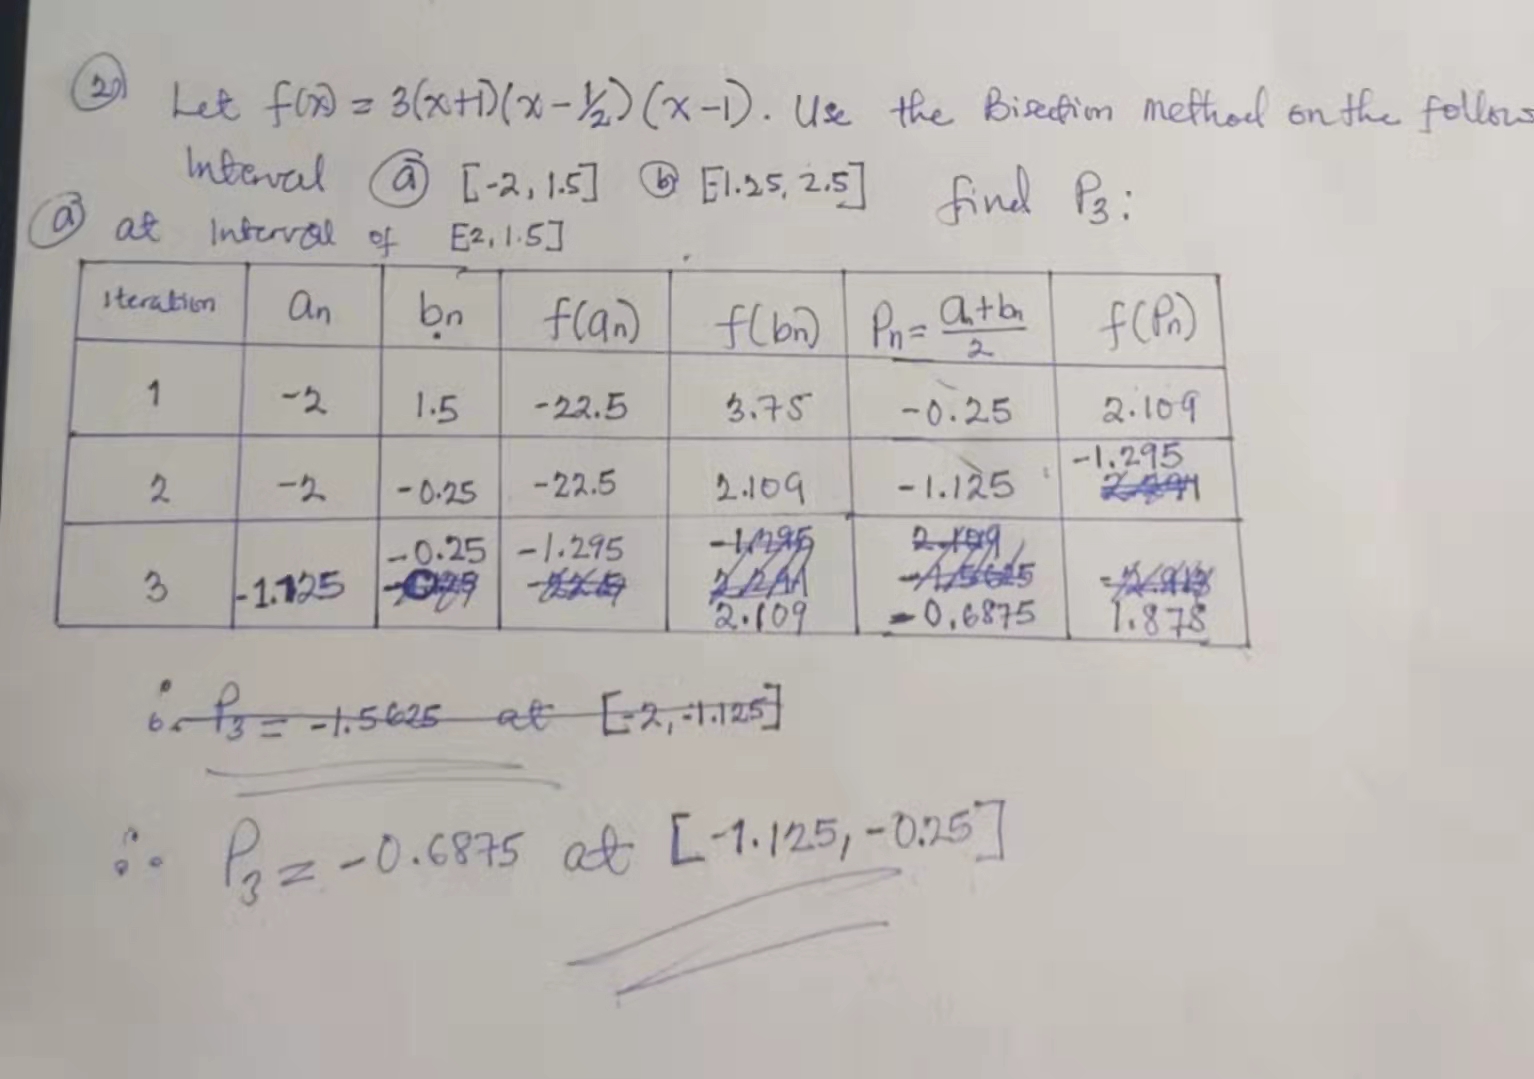 2) Let f(x) = 3(x+1)(x-½)(x-1). Use the Bisection method on the follow
Interval (a) [-2, 1.5] (b) [-1.25, 2.5] find P₃:
(a) at Interval of [-2, 1.5]
iteration an bn f(an) f(bn) Pn = (an+bn)/2 f(Pn)
1 -2 1.5 -22.5 3.75 -0.25 2.109
2 -2 -0.25 -22.5 2.109 -1.125 -1.295
3 -1.125 -0.25 -1.295 2.109 -0.6875 1.878
∴ P₃ = -1.5625 at [-2, -1.125]
∴ P₃ = -0.6875 at [-1.125, -0.25]